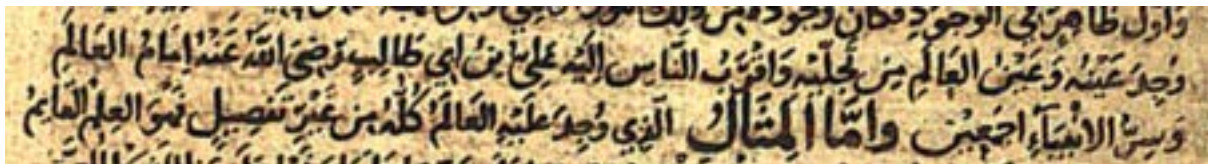 واول ظاهر في الوجود فكان وجوده من ذلك
وجد عينه وعين العالم من تجليه واقرب الناس اليه علي بن ابي طالب رضي الله عنه امام العالم
وسر الانبياء اجمعين واما المثال الذي وجد عليه العالم كله من غير تفصيل فهو العلم القايم